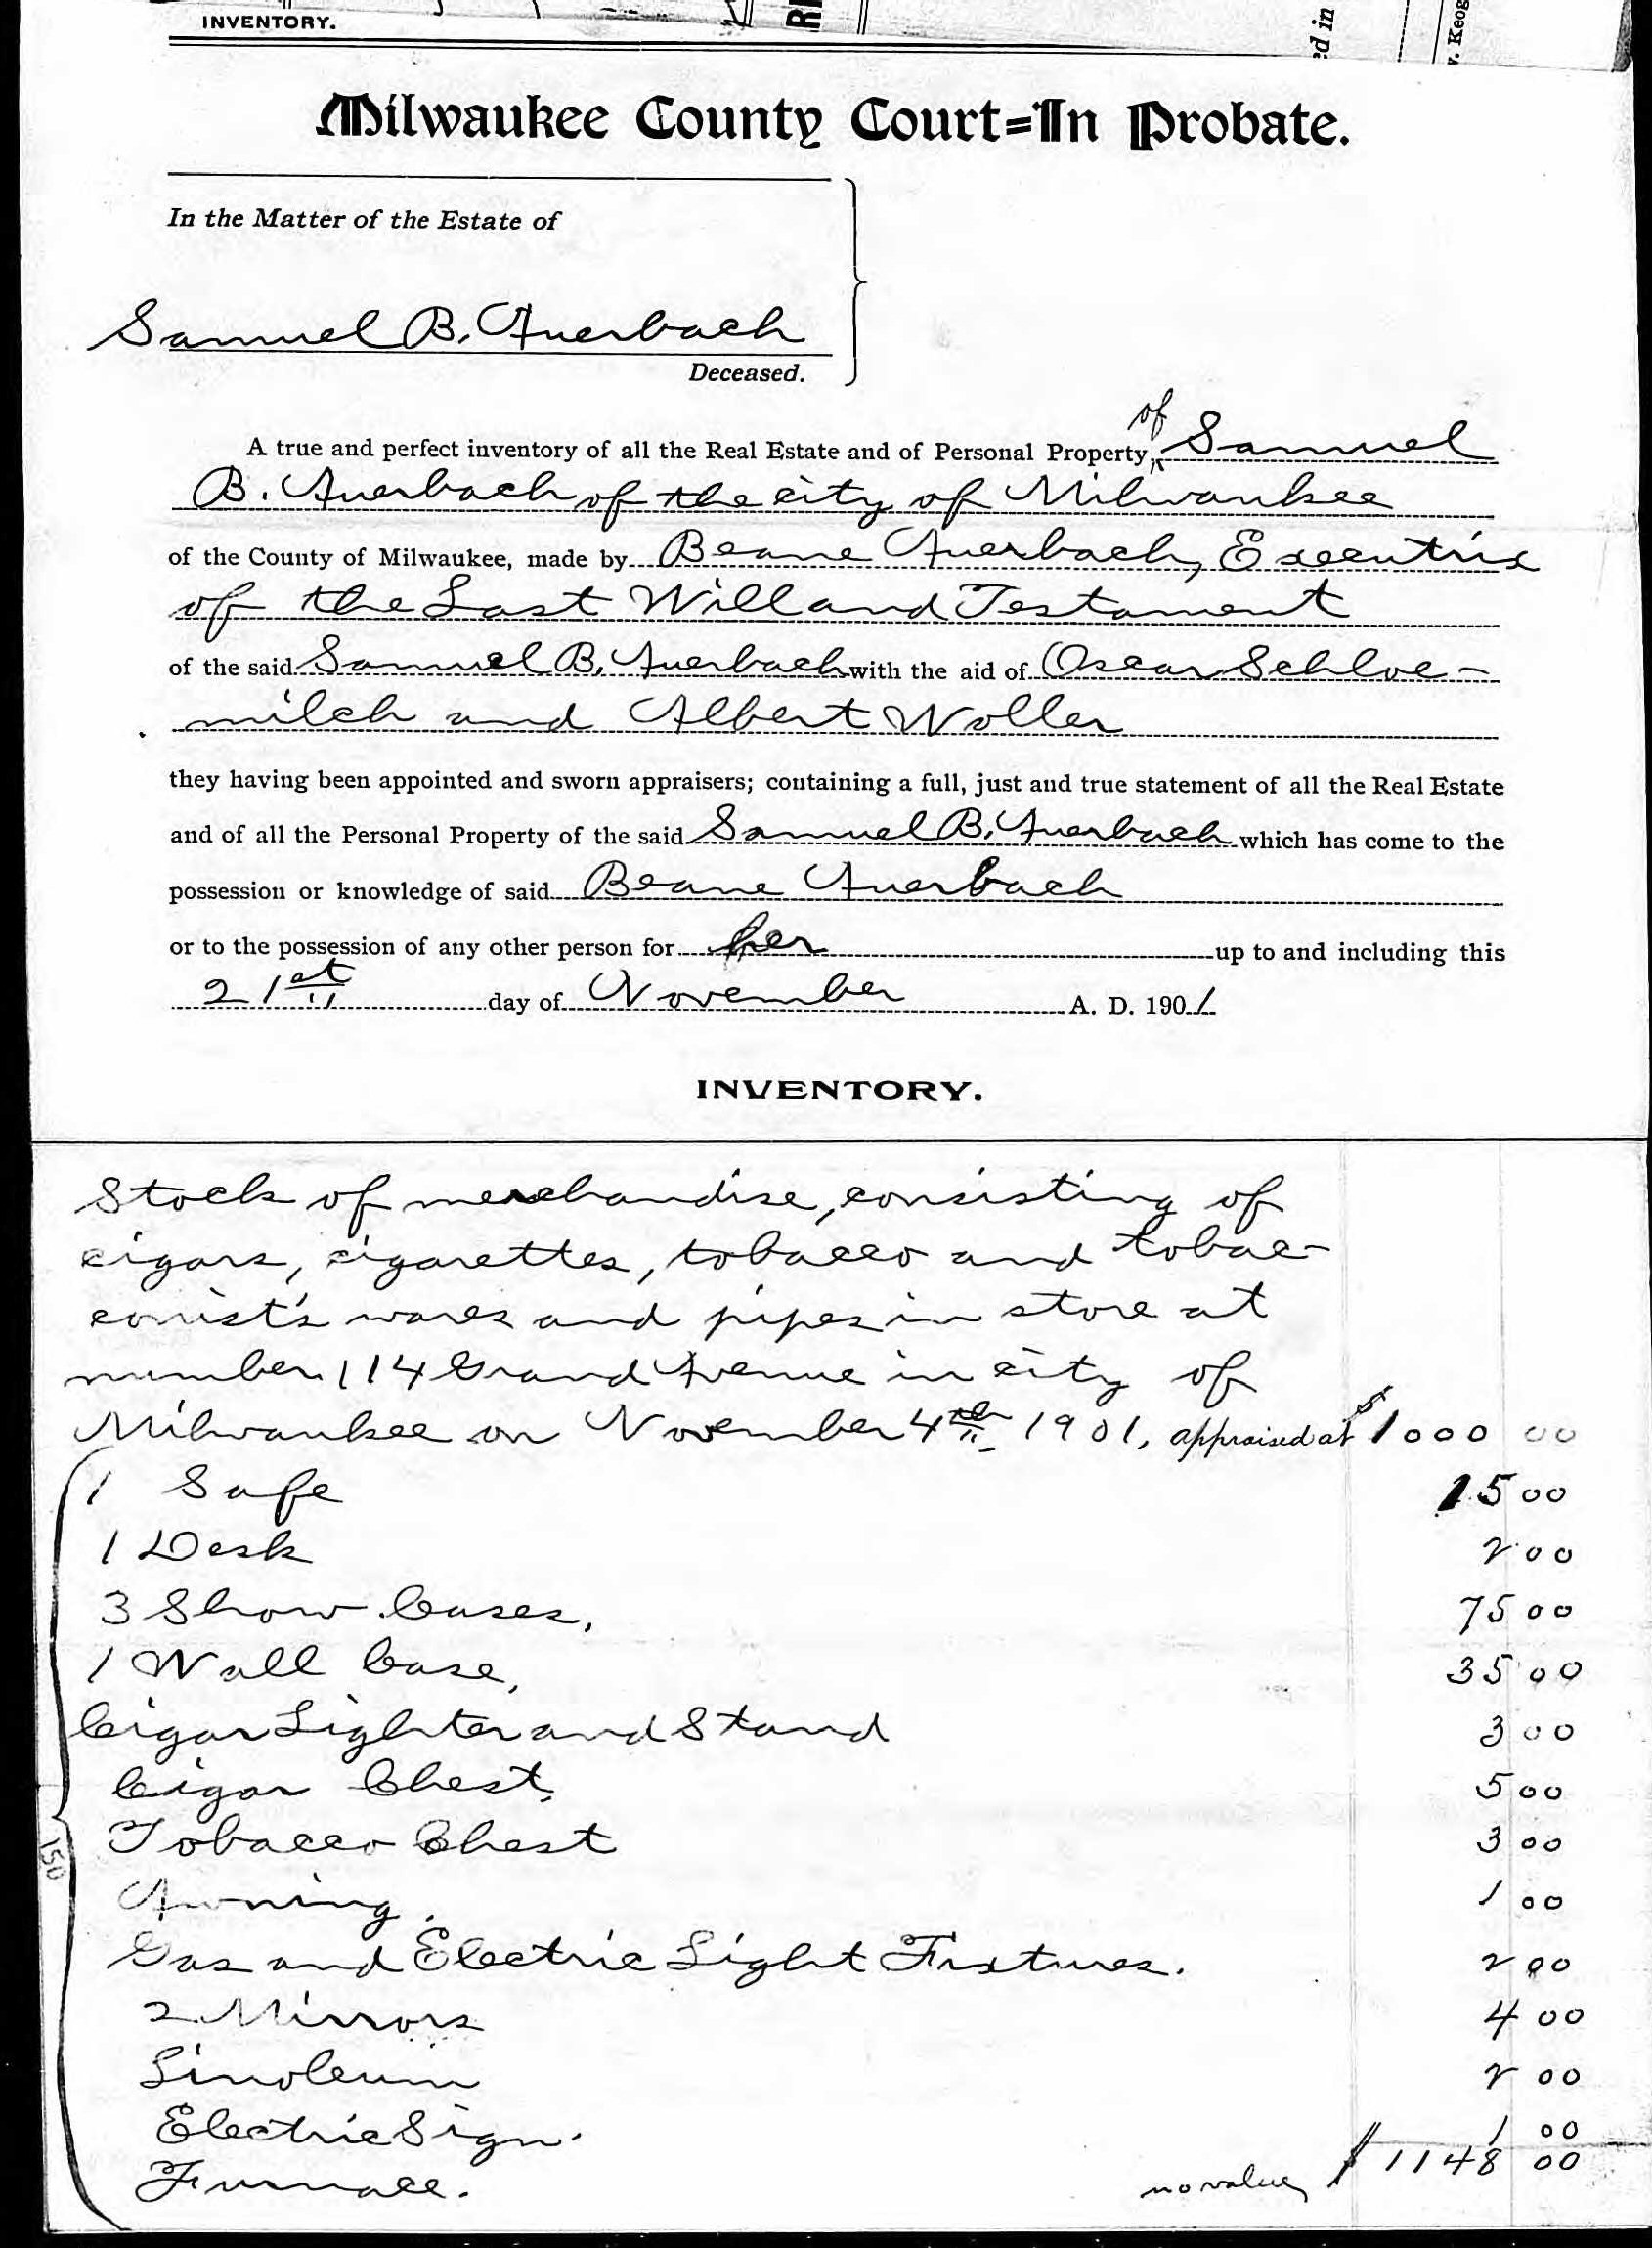 INVENTORY.
ed in
v. Keog
Milwaukee County Court=In Probate.
In the Matter of the Estate of
Samuel B. Auerbach
Deceased.
of
A true and perfect inventory of all the Real Estate and of Personal Property, Samuel
B. Auerbach of the city of Milwaukee
of the County of Milwaukee, made by Beane Auerbach, Executrix
of the Last Will and Testament
of the said Samuel B. Auerbach with the aid of Oscar Schloe-
milch and Albert Woller
they having been appointed and sworn appraisers; containing a full, just and true statement of all the Real Estate
and of all the Personal Property of the said Samuel B. Auerbach which has come to the
possession or knowledge of said Beane Auerbach
or to the possession of any other person for her up to and including this
21st day of November A. D. 1901
INVENTORY.
Stock of merchandise, consisting of
cigars, cigarettes, tobacco and tobac-
conist's wares and pipes in store at
number 114 Grand Avenue in city of
Milwaukee on November 4th 1901, appraised at $1000 00
1 Safe 15 00
1 Desk 2 00
3 Show Cases, 75 00
1 Wall Case, 35 00
Cigar Lighter and Stand 3 00
Cigar Chest, 5 00
Tobacco Chest 3 00
150
Awning. 1 00
Gas and Electric Light Fixtures. 2 00
2 Mirrors 4 00
Linoleum 2 00
Electric Sign. 1 00
$1148 00
Furnace. no value